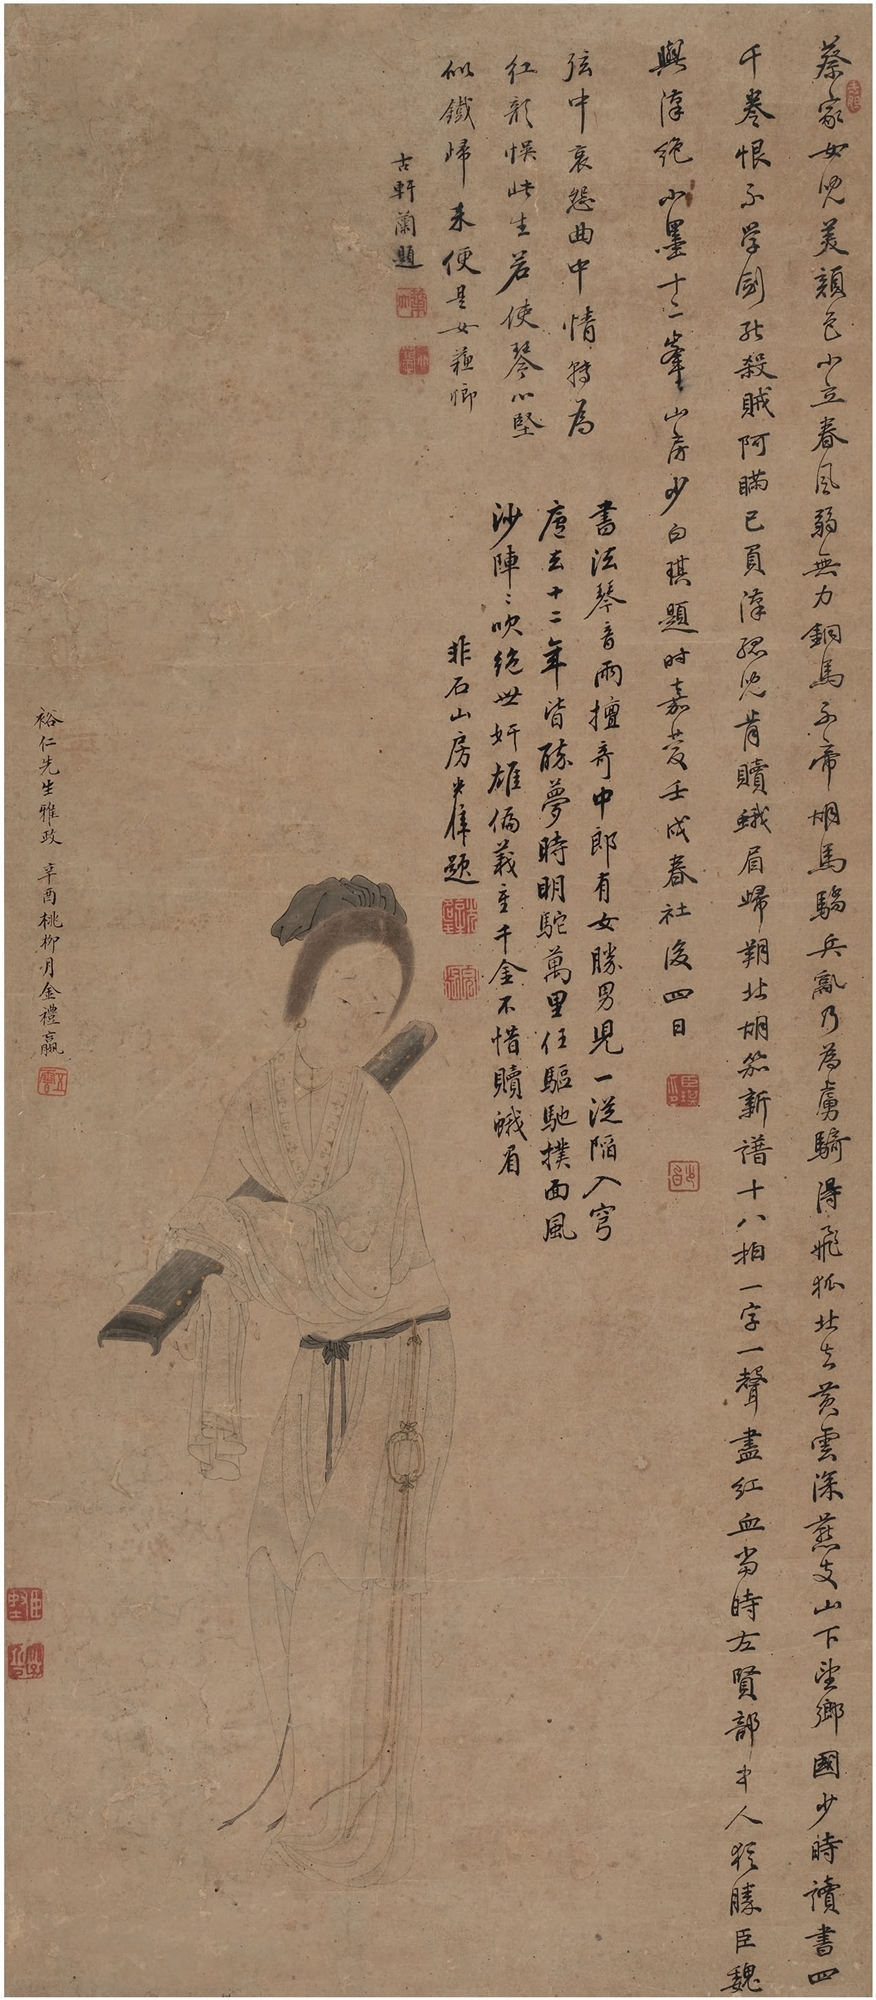 蔡家女兒美顏色小立春風弱無力銅馬子帝胡馬驕兵亂乃為虜騎得飛狐北去黃雲深燕支山下望鄉國少時讀書四
千卷恨不學劍能殺賊阿瞞已負漢孤兒肯贖蛾眉歸朔北胡笳新譜十八拍一字一聲盡紅血當時左賢部中人猶勝臣魏
與漢絕 小墨十二峯山房少白琪題時嘉慶壬戌春社後四日
弦中哀怨曲中情轉為
紅顏惧此生若使琴心堅
似鐵歸來便是女蘇卿
古軒蘭題
書法琴音兩擅奇中郎有女勝男兒一從陷入穹
廬去十二年皆酴夢時明駝萬里任驅馳撲面風
沙陣〻吹絕世奸雄偏義重千金不惜贖蛾眉
非石山房題
裕仁先生雅政 辛酉桃柳月金禮嬴